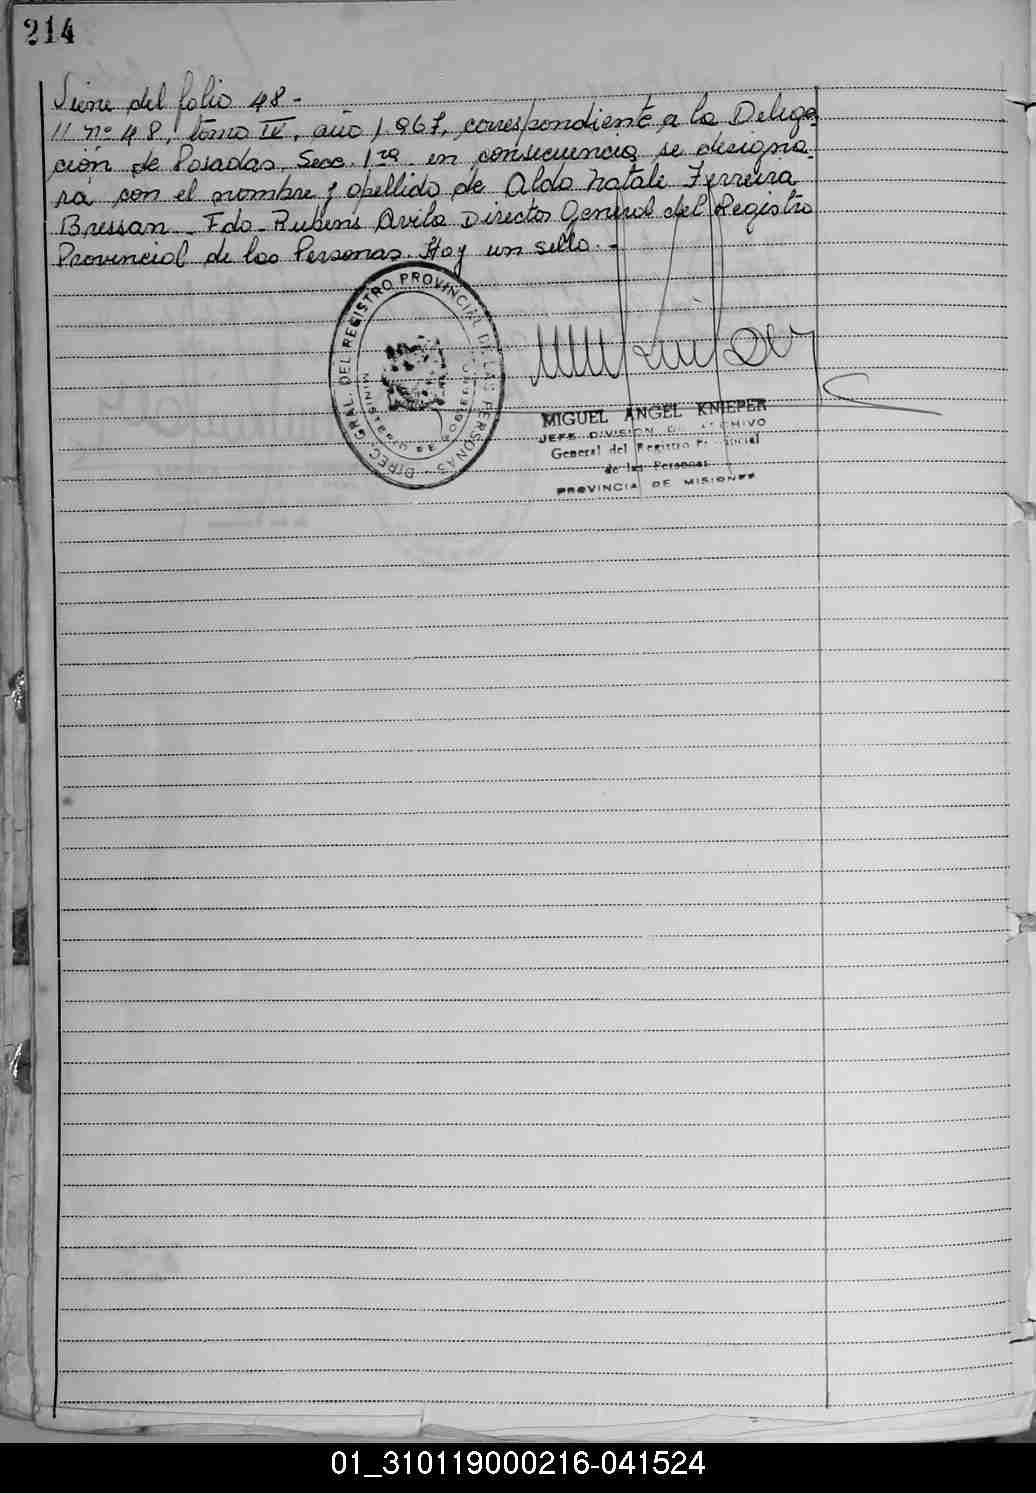 214
Viene del folio 48.-
// nº 48, tomo IV, año 1.967, correspondiente a la Delega-
ción de Posadas, Secc. 1ra en consecuencia se designa-
rá con el nombre y apellido de Aldo Natale Ferreira
Bressan - Fdo. Rubens Avila Director General del Registro
Provincial de las Personas. Hay un sello.-
DIREC. GRAL. DEL REGISTRO PROVINCIAL DE LAS PERSONAS
MINISTERIO DE GOBIERNO
MIGUEL ANGEL KNIEPER
JEFE DIVISION DE ARCHIVO
General del Registro Provincial
de las Personas
PROVINCIA DE MISIONES
01_310119000216-041524